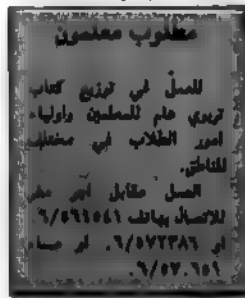 مطلوب معلمون
للعمل في توزيع كتاب
تربوي هام للمعلمين واولياء
امور الطلاب في مختلف
المناطق.
العمل مقابل اجر مغر
للاتصال بهاتف ٦/٥٦٦٥٤١
او ٦/٥٧٢٣٨٦. او مساء
٦/٥٧.٦٥١.